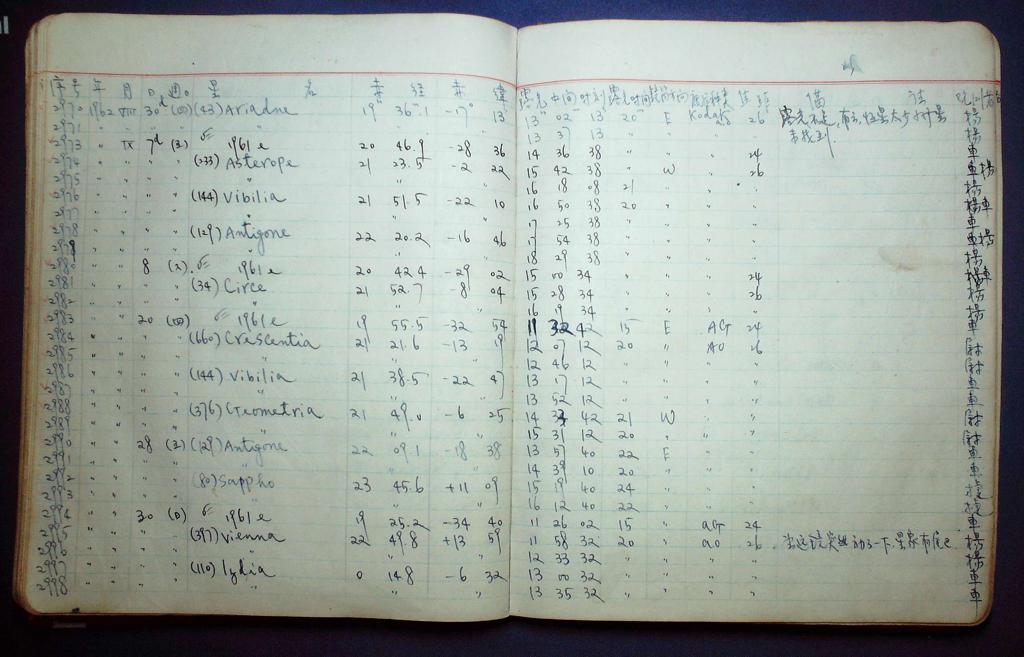 序号 年 月 日 週 星 名 赤 经 赤 緯 露光中间时刻 露光时间 望远方向 底片种类 焦距 備 註 观测者
2970 1962 VIII 30d (四) (43) Ariadne 19h 36.1 -17° 13' 13h 02m 13s 20m E Kodak 26 露光不足,
2971 " " " " " " 13 37 13 " " " "
2973 " IX 7d (五) 1961 e 20 46.9 -28 36 14 36 38 " " " 24 車
2974 " " " (233) Asterope 21 23.5 -2 22 15 42 38 " W " 26 車 楊
2975 " " " " " 16 18 08 21 " " " 楊
2976 " " " (144) Vibilia 21 51.5 -22 10 16 50 38 20 " " " 楊 車
2977 " " " " " 17 25 38 " " " " 車
2978 " " " (129) Antigone 22 20.2 -16 46 17 54 38 " " " " 車 楊
2979 " " " " " 18 29 38 " " " " 楊
2980 " " 8 (六) 1961 e 20 42.4 -29 02 15 00 34 " " " 24 楊 車
2981 " " " (34) Circe 21 52.7 -8 04 15 28 34 " " " 26 楊
2982 " " " " " 16 19 34 " " " " 楊
2983 " " 20 (四) 1961 e 19 55.5 -32 54 11 32 42 15 E AG 24 車
2984 " " " (660) Crescentia 21 21.6 -13 19 12 07 12 20 " AO 26
2985 " " " " " 12 46 12 " " " "
2986 " " " (144) Vibilia 21 38.5 -22 47 13 17 12 " " " " 車
2987 " " " " " 13 52 12 " " " " 車
2988 " " " (376) Geometria 21 49.0 -6 25 14 42 21 W " "
2989 " " " " " 15 31 12 20 " " "
2990 " " 28 (五) (129) Antigone 22 09.1 -18 38 13 57 40 22 E " " 車
2991 " " " " " 14 39 10 20 " " " 車
2992 " " " (80) Sappho 23 45.6 +11 09 15 19 40 24 " " "
2993 " " " " " 16 12 40 22 " " "
2994 " " 30 (日) 1961 e 19 25.2 -34 40 11 26 02 15 " AG 24 車
2995 " " " (397) Vienna 22 49.8 +13 59 11 58 32 20 " ao 26 楊
2996 " " " " " 12 33 32 " " " " 楊
2997 " " " (110) Lydia 0 14.8 -6 32 13 00 32 " " " " 車
2998 " " " " " 13 35 32 " " " " 車